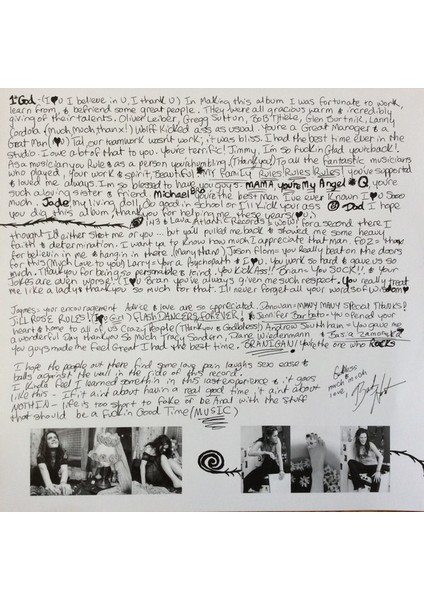 1st God - (I ♥ U I believe in U, I thank U) In Making this album I was fortunate to work,
learn from, & befriend some great people. They were all gracious warm & incredibly
giving of their talents. Oliver Leiber, Gregg Sutton, Bob Thiele, Glen Burtnik, Lanny
Cordola (Much, Much thanx!) Wolff Kicked ass as usual. You're a Great Manager & a
Great Man (♥U) Tal, our teamwork wasn't work; it was bliss. I had the best time ever in the
studio. I owe a lot of that to you. You're terrific! Jimmy, I'm so fuckin Glad you'r back!.
As a musician you Rule & as a person your humbling (Thank you) To all the fantastic musicians
who played, your work & spirit, Beautiful My Family Rules! Rules! Rules! you've supported
& loved me always. I'm so blessed to have you guys. MAMA your My Angel
such a loving sister & friend. Michael
much. Jade (my living doll) Do good in School or I'll Kick your ass
you dig this album (thank you for helping me these years ♥U.)
Lava Atlantic Records U.S.A. for a second there I
thought I'd either shot me or you... but ya'll pulled me back & showed me some heavy
faith & determination. I want ya to know how much I appreciate that man.
for believin in me & hangin in there. (Many thanx) Jason Flom - you Really beat on the doors
for this (Much Love to you) Larry - your a Psychopath & I ♥ U. You work so hard & gave us so
much. Thank you for being so personable & kind. You KICK ASS!! Brian - You SUCK!! & your
Jokes are even worse! I ♥ U Brian you've always given me such respect. You really treat
me like a lady & thank you so much for that. I'll never forget
James - your encouragement Advice & love are so appreciated. Donovan - MANY MANY special Thanks!
JILL ROSE RULES! FLASHDANCERS FOREVER! & Jennifer Barbato - you opened your
heart & home to all of us Crazy People (Thank you & Godbless) Andrew - you gave me
a wonderful Day thank you so Much Tracy Sondern, Diane Wiedenmann & Basia Zamorska
you guys made me feel Great I had the best time. BRANIGAN! You're the one who ROCKS
I hope the people out there find some love pain laughs sex ease &
balls against the wall in the ride of this record.
I Kinda feel I learned somethin in this last experience & it goes
like this - If it ain't about havin a real good time, it ain't about
NOTHIN - life is too short to fake or be Anal with the stuff
that should be a fuckin Good Time (MUSIC)
Godbless
much much
love,